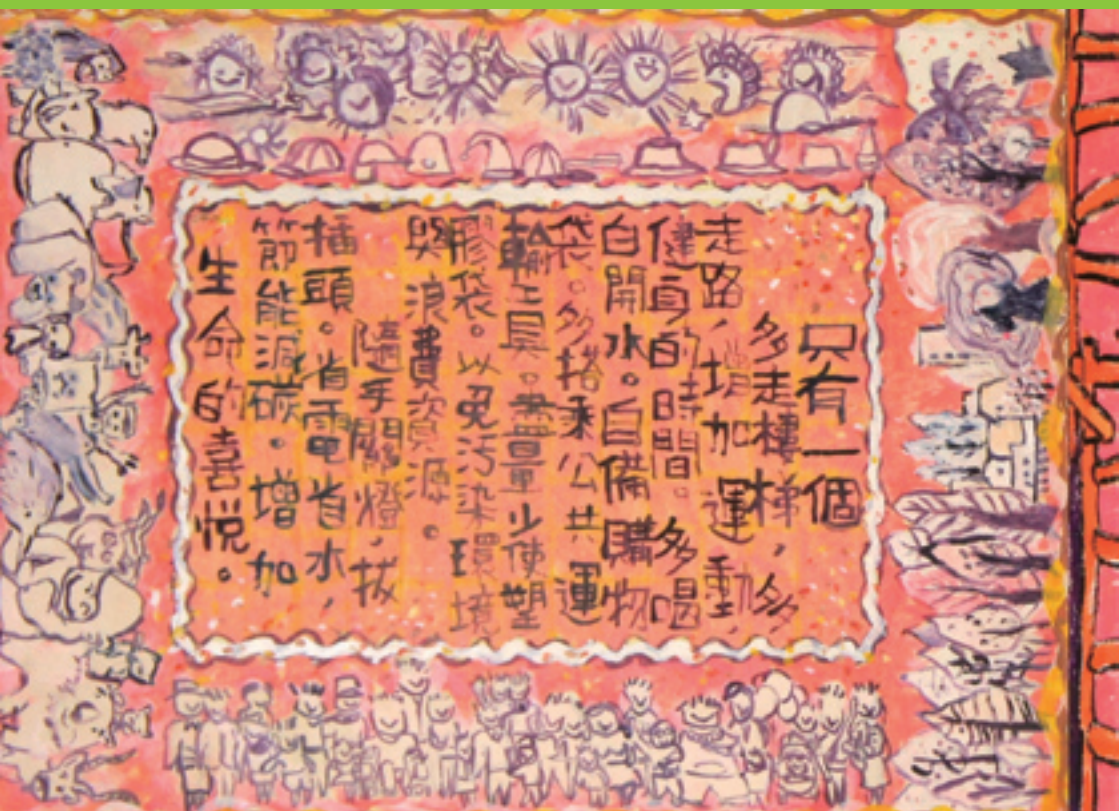 只有一個
多走樓梯，多
走路，增加運動，
健身的時間。多喝
白開水。自備購物
袋。多搭乘公共運
輸工具。盡量少使塑
膠袋。以免污染環境
與浪費資源。
隨手關燈，拔
插頭。省電省水，
節能減碳。增加
生命的喜悅。